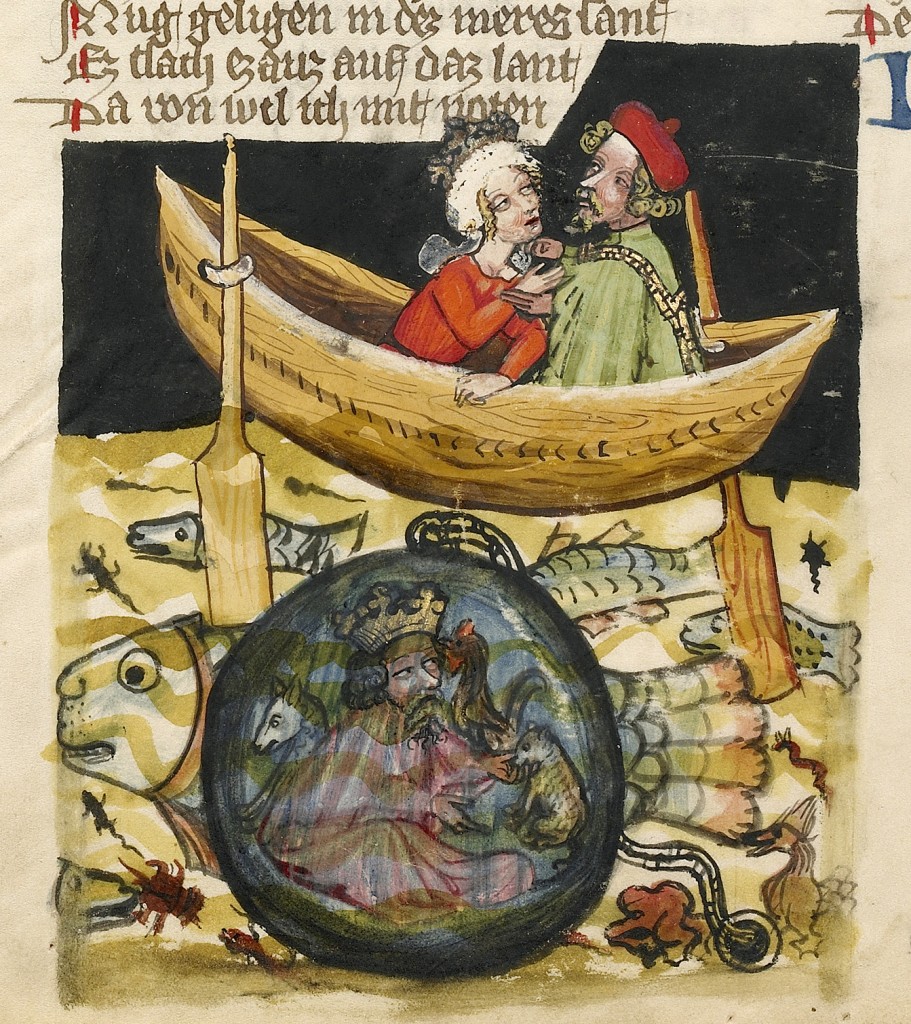 Nug geligen in dez meres sant
Ez trach ez auz auf daz lant
Da von wil ich mit noten
De